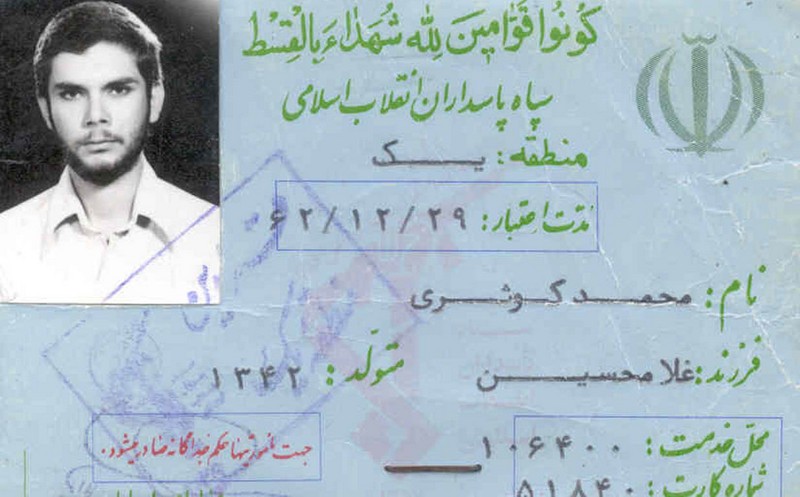 كُونُوا قَوَّامِينَ لِلّهِ شُهَدَاءَ بِالْقِسْطِ
سپاه پاسداران انقلاب اسلامی
منطقه: یک
مدّت اعتبار: ۶۲/۱۲/۲۹
نام: محمد کوثری
فرزند: غلامحسین متولّد: ۱۳۴۲
محل خدمت: ۱۰۶۴۰۰
جهت مأموریتها حکم جداگانه صادر میشود.
شماره کارت: ۵۱۸۴۰